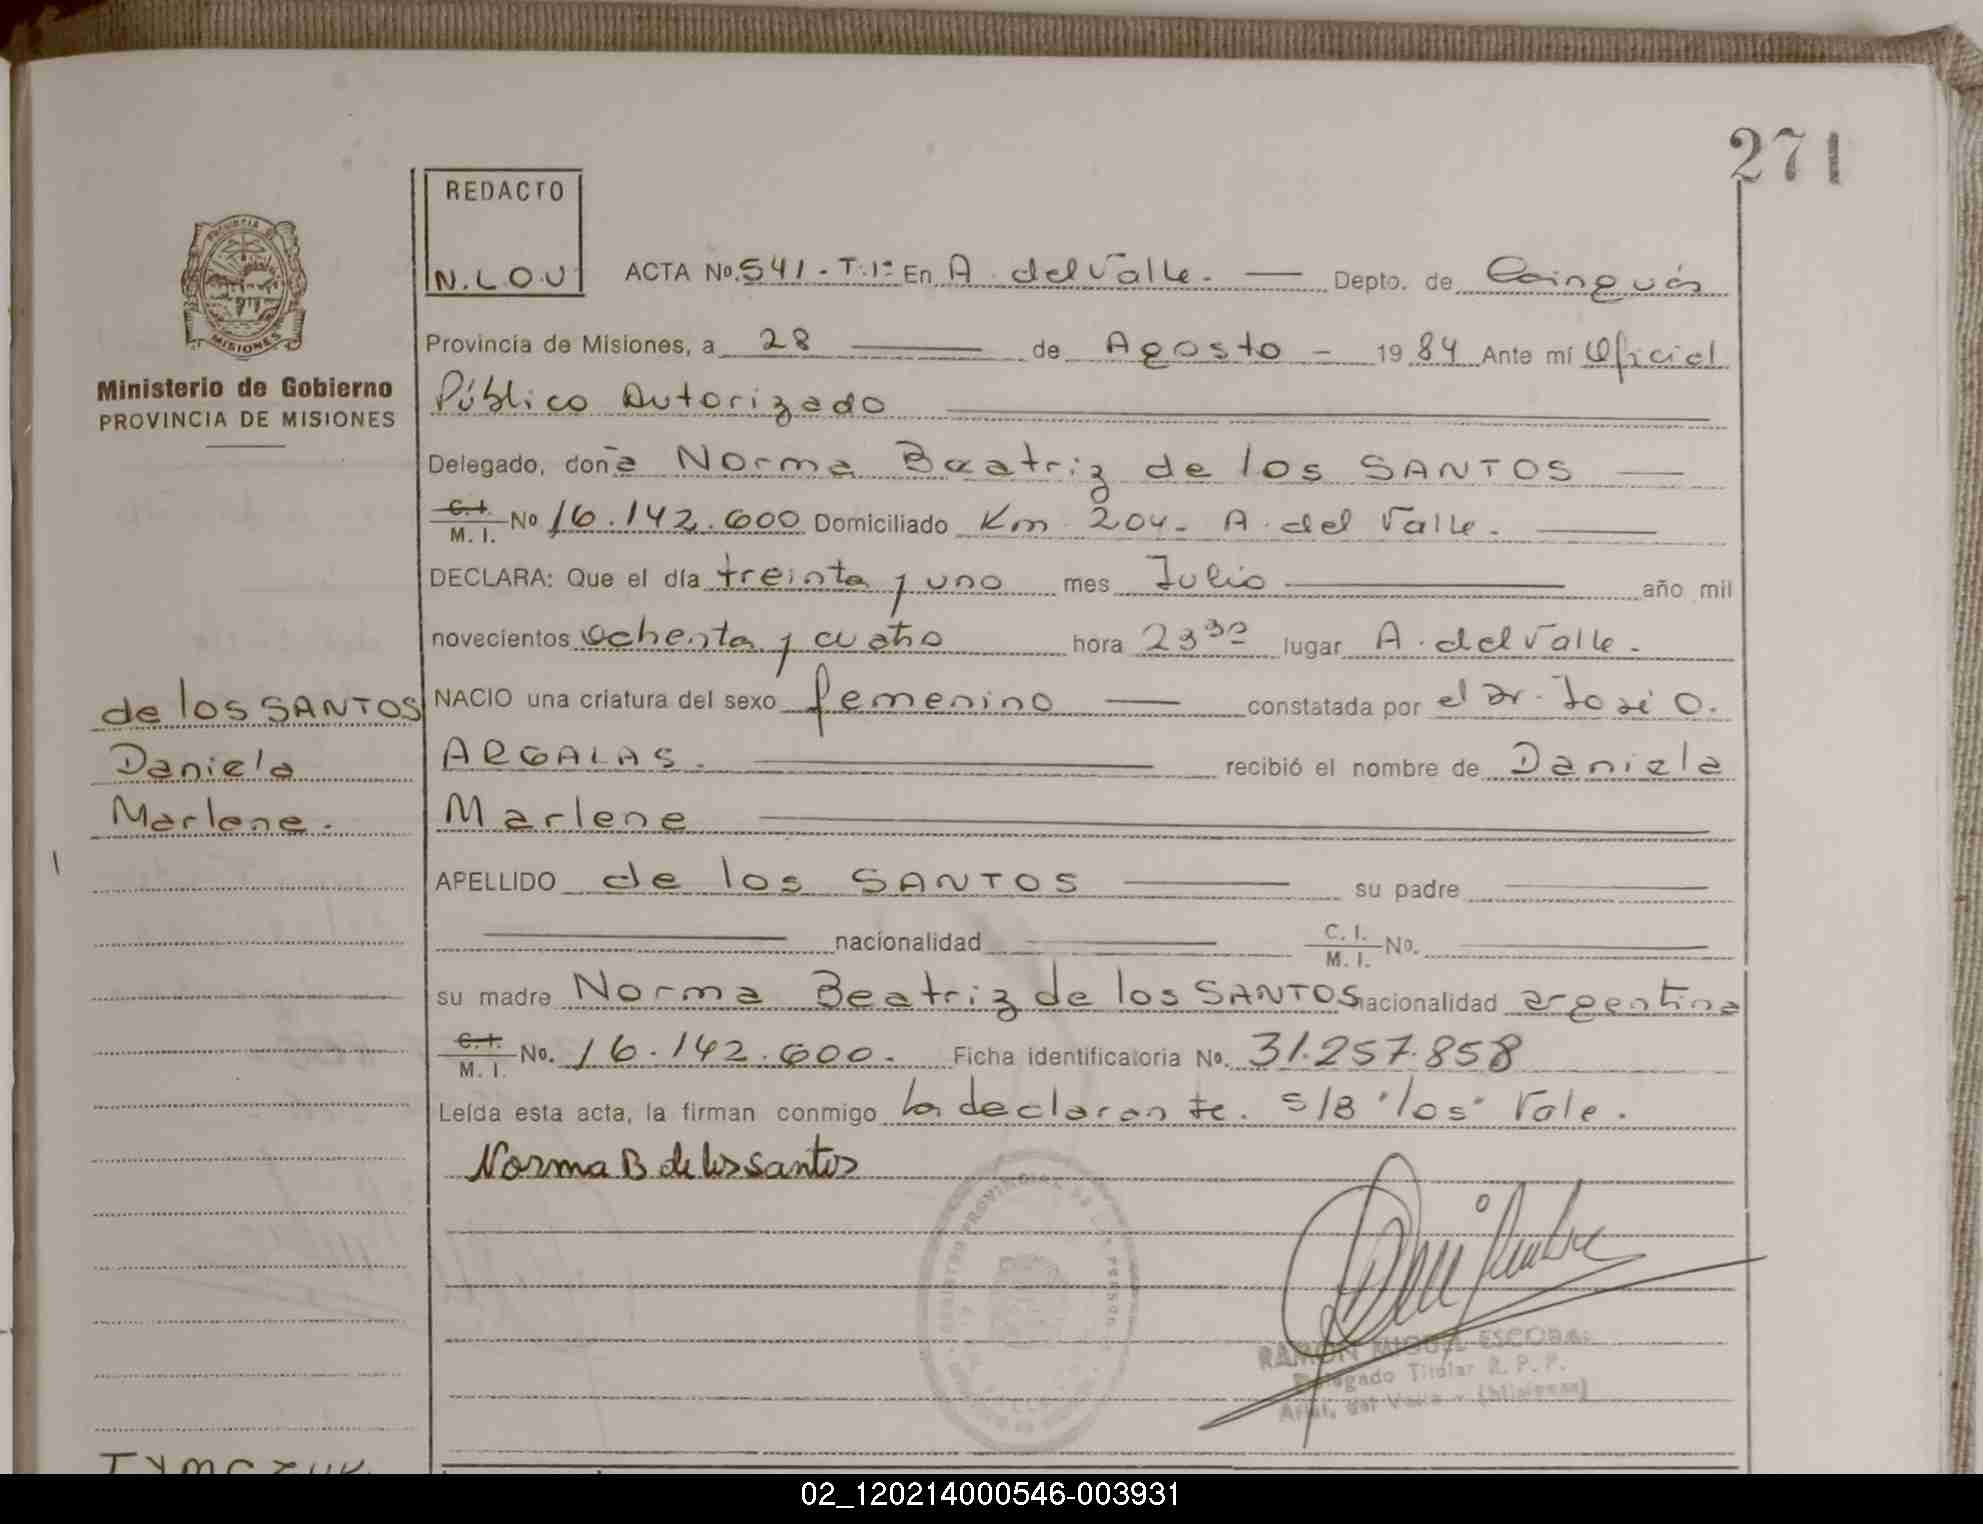 271
REDACTO
N.L.O.U
PROVINCIA DE
MISIONES
Ministerio de Gobierno
PROVINCIA DE MISIONES
ACTA No. 541 - T: 1º En A. del Valle. — Depto. de Cainguás
Provincia de Misiones, a 28 — de Agosto - 1984 Ante mí Oficial
Público Autorizado
Delegado, doña Norma Beatriz de los SANTOS —
C. I. M. I. No 16.142.600 Domiciliado Km 204 - A. del Valle. —
DECLARA: Que el día treinta y uno mes Julio — año mil
novecientos ochenta y cuatro hora 23 30 lugar A. del Valle.
NACIO una criatura del sexo femenino — constatada por el Dr. José O.
ARGALAS. — recibió el nombre de Daniela
Marlene
APELLIDO de los SANTOS — su padre —
— nacionalidad — C. I. M. I. No. —
su madre Norma Beatriz de los SANTOS nacionalidad argentina
C. I. M. I. No. 16.142.600. Ficha identificatoria No. 31.257.858
Leída esta acta, la firman conmigo la declarante. s/B "los" Vale.
Norma B de los santos
de los SANTOS
Daniela
Marlene.
REGISTRO PROVINCIAL DE LAS PERSONAS
RAMON MIGUEL ESCOBAR
Delegado Titular R. P. P.
Arist. del Valle - (Misiones)
02_120214000546-003931